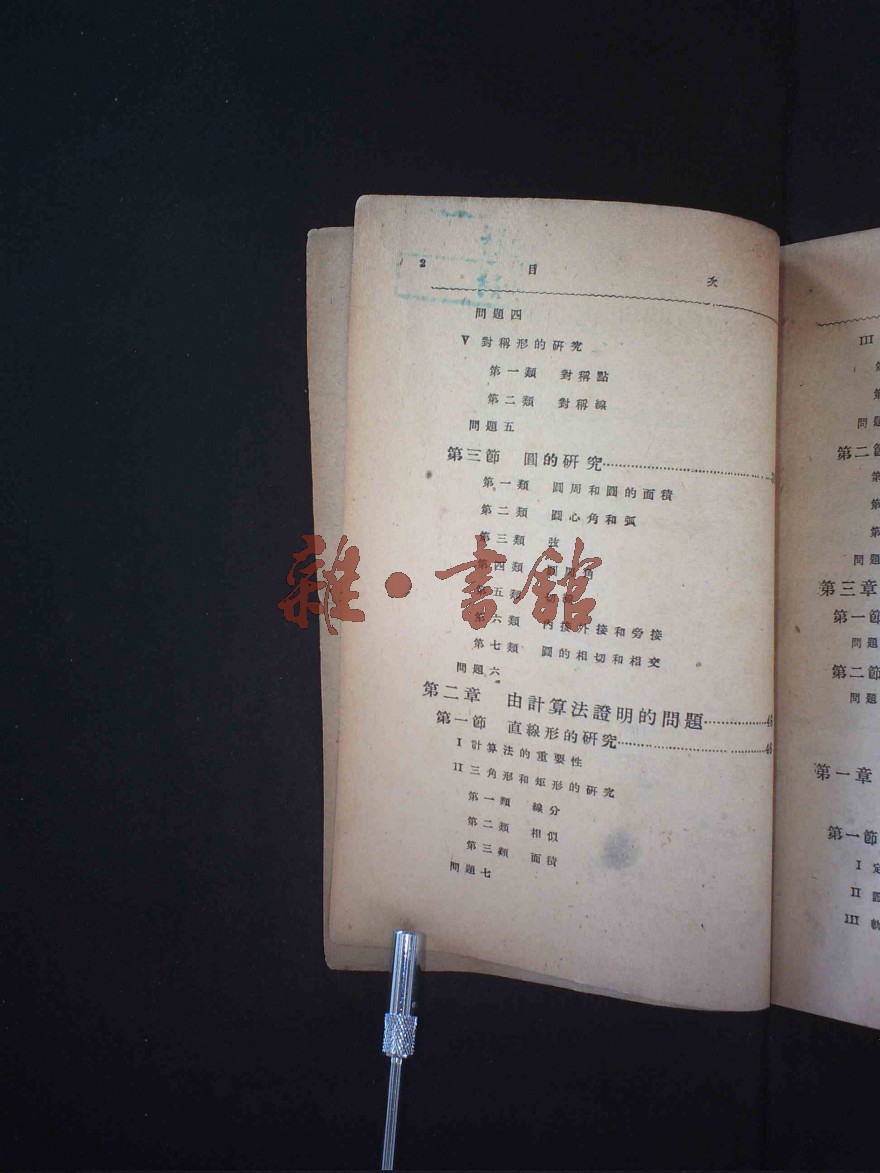 2 目 次
問題四
V 對稱形的研究
第一類 對稱點
第二類 對稱線
問題五
第三節 圓的研究
第一類 圓周和圓的面積
第二類 圓心角和弧
第三類 弦
第四類 圓周角
第五類 切線
第六類 內接外接和旁接
第七類 圓的相切和相交
問題六
第二章 由計算法證明的問題 46
第一節 直線形的研究 46
I 計算法的重要性
II 三角形和矩形的研究
第一類 線分
第二類 相似
第三類 面積
問題七
雜·書館
III
第
第
問題
第二節
第
第
第
問題
第三章
第一節
問題
第二節
問題
第一章
第一節
I 定
II
III 軌